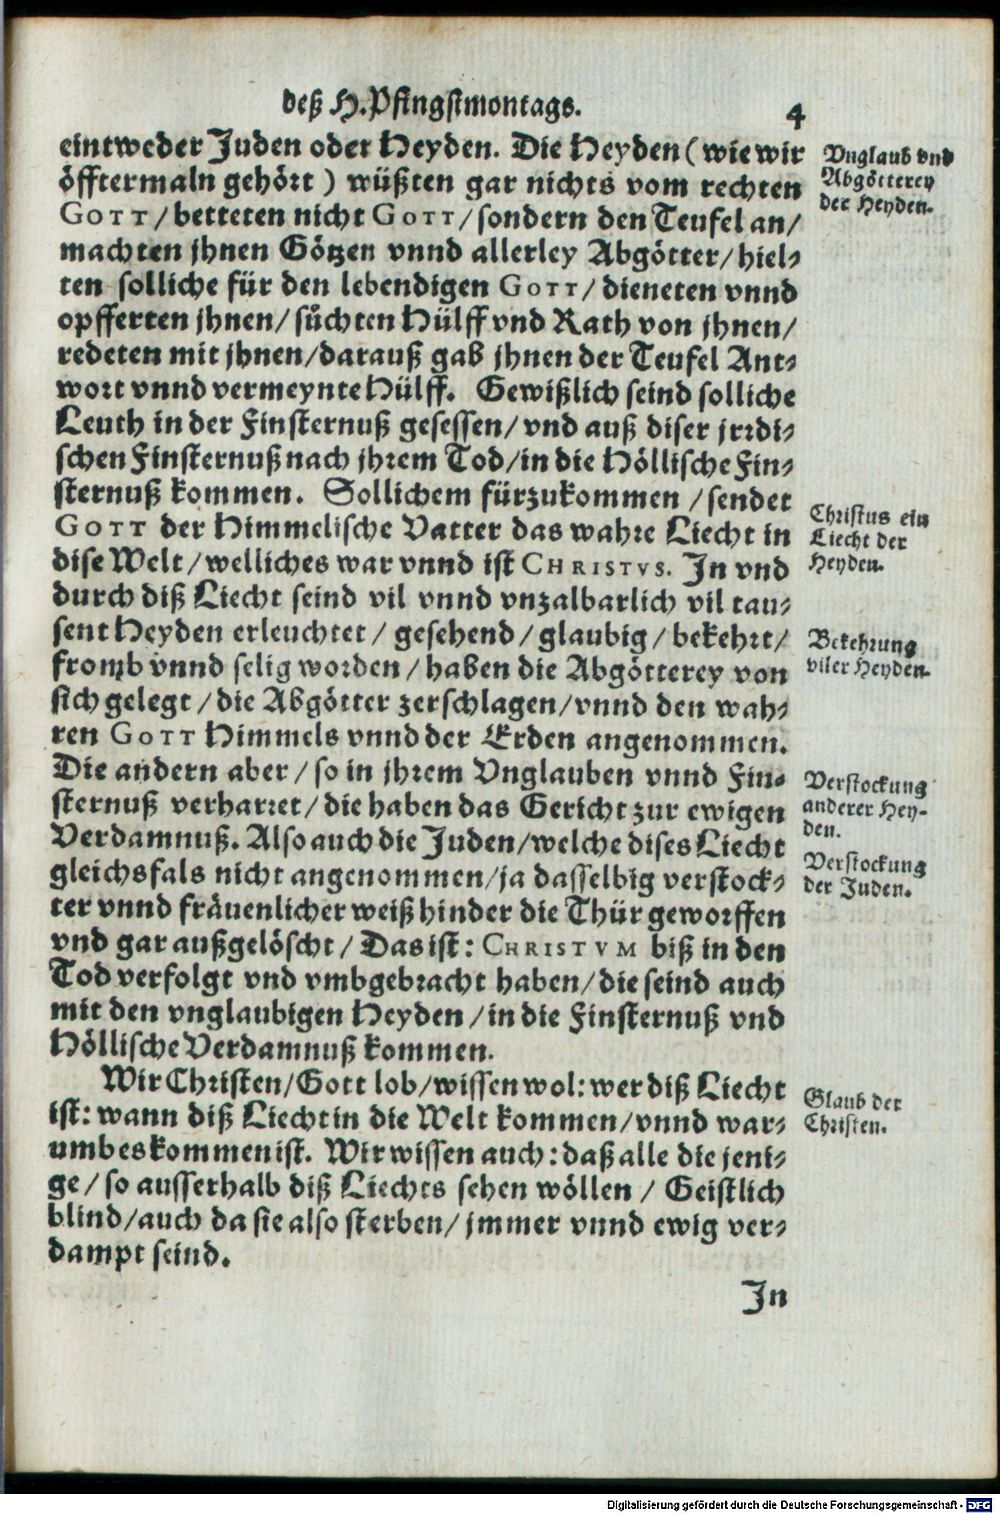 deß H. Pfingstmontags. 4
eintweder Juden oder Heyden. Die Heyden (wie wir
öfftermaln gehört) wüßten gar nichts vom rechten
GOTT/ betteten nicht GOTT/ sondern den Teufel an/
machten jhnen Götzen vnnd allerley Abgötter/ hiel-
ten solliche für den lebendigen GOTT/ dieneten vnnd
opfferten jhnen/ sůchten Hülff vnd Rath von jhnen/
redeten mit jhnen/ darauß gab jhnen der Teufel Ant-
wort vnnd vermeynte Hülff. Gewißlich seind solliche
Leuth in der Finsternuß gesessen/ vnd auß diser jrrdi-
schen Finsternuß nach jhrem Tod/ in die Höllische Fin-
sternuß kommen. Sollichem fürzukommen / sendet
GOTT der Himmelische Vatter das wahre Liecht in
dise Welt/ welliches war vnnd ist CHRISTVS. In vnd
durch diß Liecht seind vil vnnd vnzalbarlich vil tau-
sent Heyden erleuchtet/ gesehend/ glaubig/ bekehrt/
fromb vnnd selig worden/ haben die Abgötterey von
sich gelegt / die Abgötter zerschlagen/ vnnd den wah-
ren GOTT Himmels vnnd der Erden angenommen.
Die andern aber / so in jhrem Vnglauben vnnd Fin-
sternuß verharret/ die haben das Gericht zur ewigen
Verdamnuß. Also auch die Juden/ welche dises Liecht
gleichsfals nicht angenommen/ ja dasselbig verstock-
ter vnnd fräuenlicher weiß hinder die Thür geworffen
vnd gar außgelöscht / Das ist: CHRISTVM biß in den
Tod verfolgt vnd vmbgebracht haben/ die seind auch
mit den vnglaubigen Heyden / in die Finsternuß vnd
Höllische Verdamnuß kommen.
Wir Christen/ Gott lob/ wissen wol: wer diß Liecht
ist: wann diß Liecht in die Welt kommen/ vnnd war-
umb es kommen ist. Wir wissen auch: daß alle die jeni-
ge/ so ausserhalb diß Liechts sehen wöllen / Geistlich
blind/ auch da sie also sterben/ jmmer vnnd ewig ver-
dampt seind.
In
Vnglaub vnd
Abgötterey
der Heyden.
Christus ein
Liecht der
Heyden.
Bekehrung
viler Heyden.
Verstockung
anderer Hey-
den.
Verstockung
der Juden.
Glaub der
Christen.
Digitalisierung gefördert durch die Deutsche Forschungsgemeinschaft - DFG